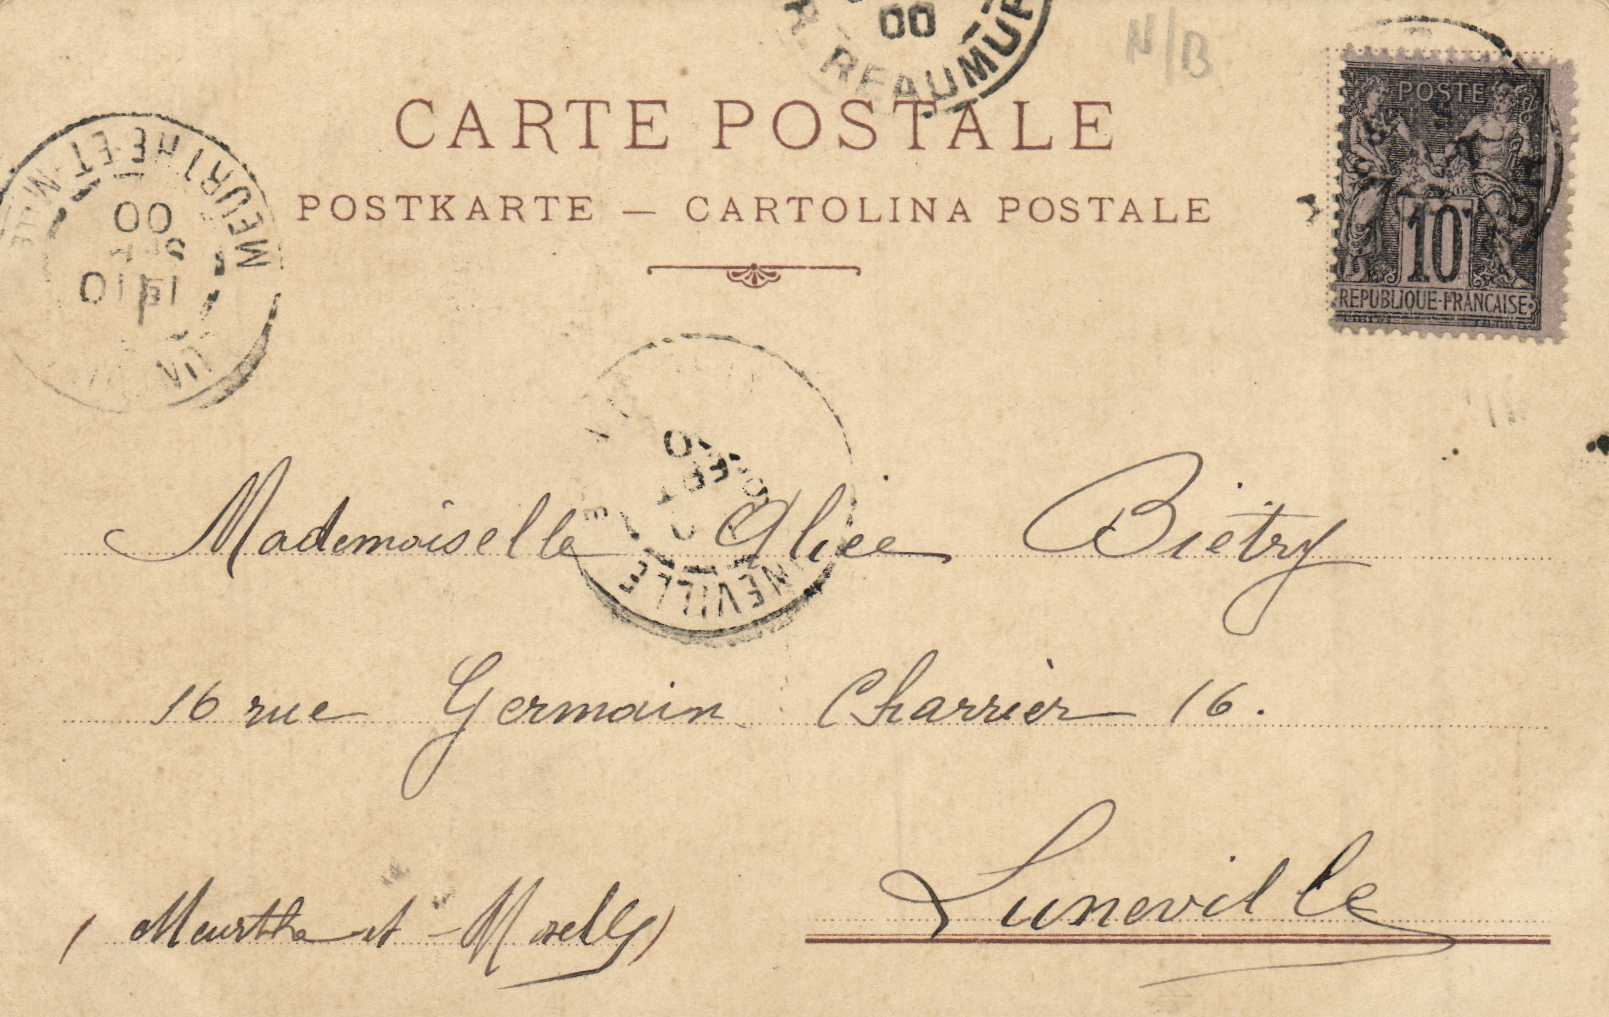 00
R. REAUMUR
N/B
CARTE POSTALE
POSTKARTE — CARTOLINA POSTALE
POSTE
10
REPUBLIQUE-FRANÇAISE
MEURTHE-ET-MLLE
00
SEPT
10
NEVILLE
Mademoiselle Alice Biétry
16 rue Germain Charrier 16.
Luneville
(Meurthe et-Moselle)